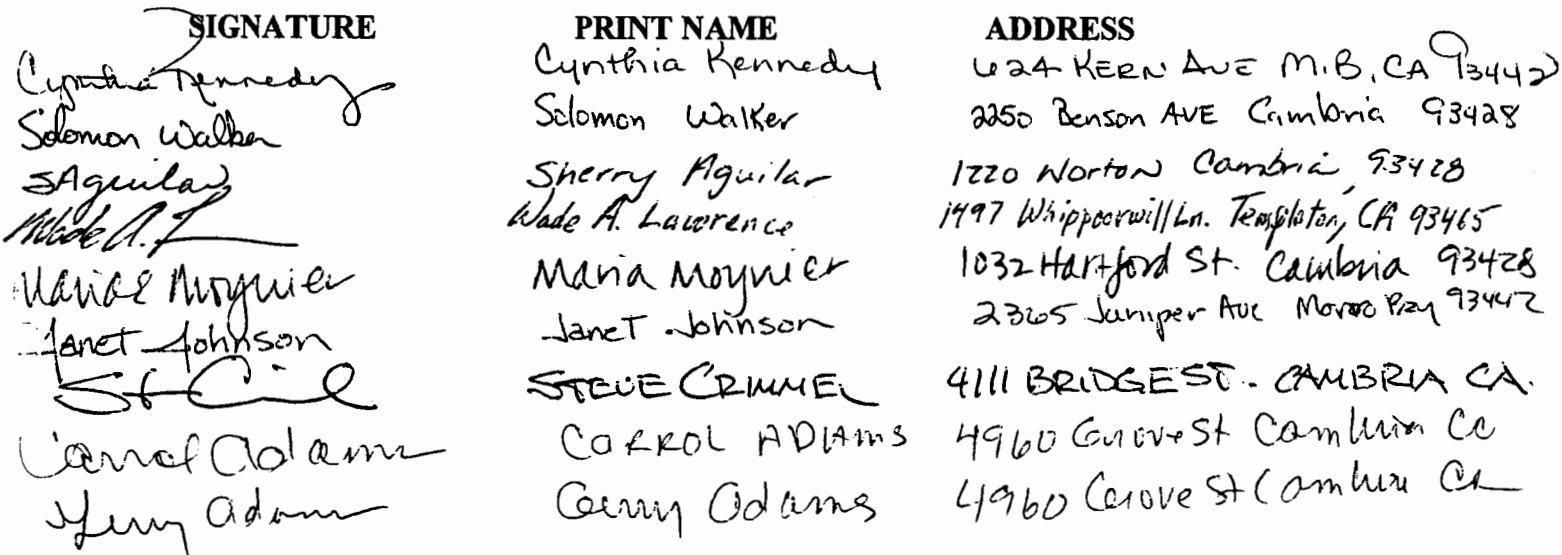 SIGNATURE PRINT NAME ADDRESS
Cynthia Kennedy Cynthia Kennedy 624 KERN AVE M.B, CA 93442
Solomon Walker Solomon Walker 2250 Benson AVE Cambria 93428
SAguilar Sherry Aguilar 1220 Norton Cambria, 93428
Wade A. Wade A. Lawrence 1497 Whippoorwill Ln. Templeton, CA 93465
Maria Moynier Maria Moynier 1032 Hartford St. Cambria 93428
Janet Johnson Janet Johnson 2365 Juniper Ave Morro Bay 93442
STEVE CRIMMEL 4111 BRIDGE ST. CAMBRIA CA.
Carrol Adams CARROL ADAMS 4960 Grove St Cambria Ca
Gerry Adams Gerry Adams 4960 Grove St Cambria Ca